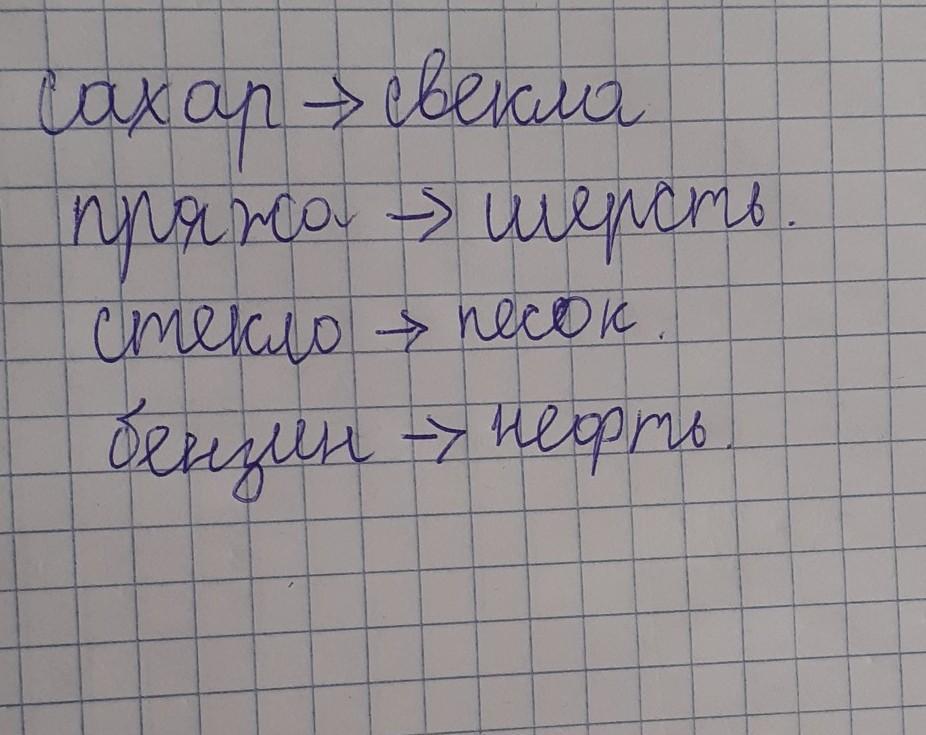 сахар → свекла
пряжа → шерсть.
стекло → песок.
бензин → нефть.